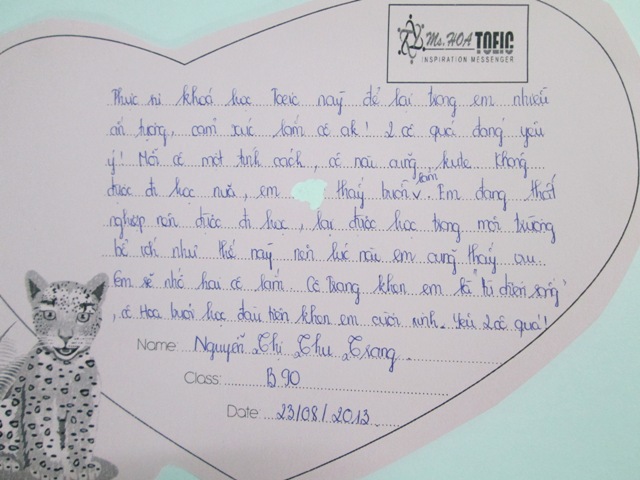 Ms. HOA TOEIC
INSPIRATION MESSENGER
Thực sự khoá học Toeic này để lại trong em nhiều
ấn tượng, cảm xúc lắm cô ak! 2 cô quá đáng yêu
ý! Mỗi cô một tính cách, cô nào cũng kute. Không
được đi học nữa, em thấy buồn lắm. Em đang thất
nghiệp nên được đi học, lại được học trong môi trường
bổ ích như thế này nên lúc nào em cũng thấy
Em sẽ nhớ hai cô lắm. Cô Trang khen em là "từ điển sống"
, cô Hoa buổi học đầu tiên khen em cười xinh. Yêu 2 cô quá!
Name: Nguyễn Thị Thu Trang.
Class: B90
Date: 23/08/2013